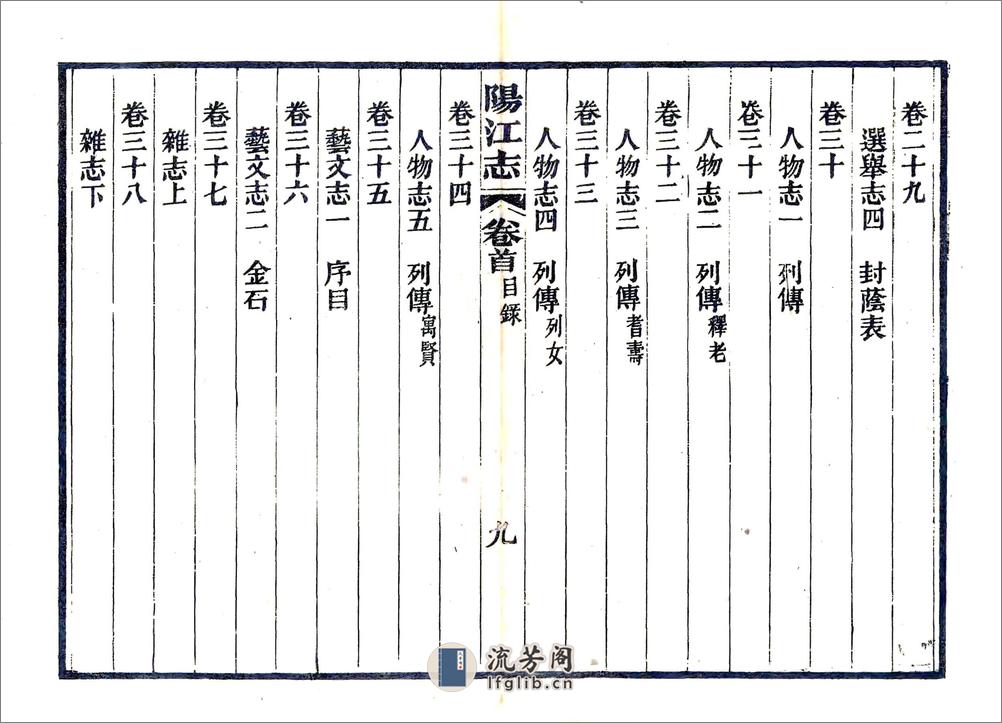 卷二十九
選舉志四　封蔭表
卷三十
人物志一　列傳
卷三十一
人物志二　列傳釋老
卷三十二
人物志三　列傳耆壽
卷三十三
人物志四　列傳列女
陽江志　卷首目錄　九
卷三十四
人物志五　列傳寓賢
卷三十五
藝文志一　序目
卷三十六
藝文志二　金石
卷三十七
雜志上
卷三十八
雜志下
流芳阁
lfglib.cn